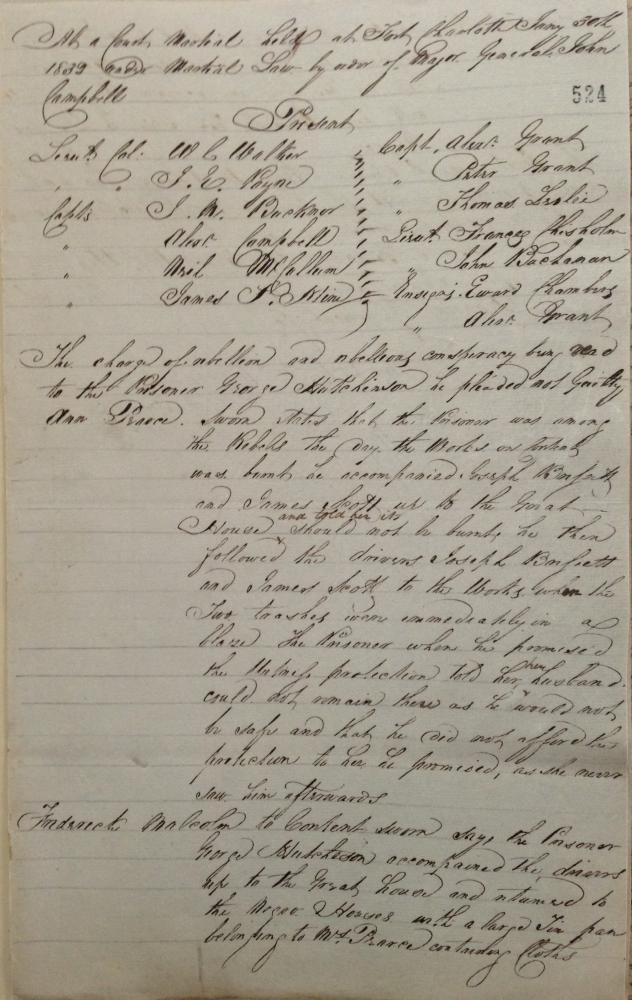 At a Court Martial held at Fort Charlotte Jany 30th
1832 under Martial Law by order of Major General John
Campbell
524
Present
Lieut. Col: W C Walker
" " J. E. Payne
Capts J. M. Bucknor
" Alexr. Campbell
" Neil McCallum
" James P. Kline
Capt. Alexr. Grant
" Peter Grant
" Thomas Leslie
Lieut. Francis Chisholm
" John Buchanan
Ensigns Edward Chambers
" Alexr. Grant
The charge of rebellion and rebellious conspiracy being read
to the Prisoner George Hutchinson he pleaded not Guilty
Ann Pearce. Sworn states that the Prisoner was among
the Rebels the day the Works on Content
was burnt he accompanied Joseph
and James Scott up to the Great
House and told her it should not be burnt, he then
followed the drivers Joseph
and James Scott to the Works when the
Two trashes were immediately in a
blaze The Prisoner when he promised
the Witness protection told her, her husband
could not remain there as he would not
be safe and that he did not afford the
protection to her he promised, as she never
saw him afterwards
Frederick Malcolm to Content sworn says the Prisoner
George Hutchison accompained the drivers
up to the Great house and returned to
the Negro Houses with a large Tin pan
belonging to Mrs. Pearce containing Cloths